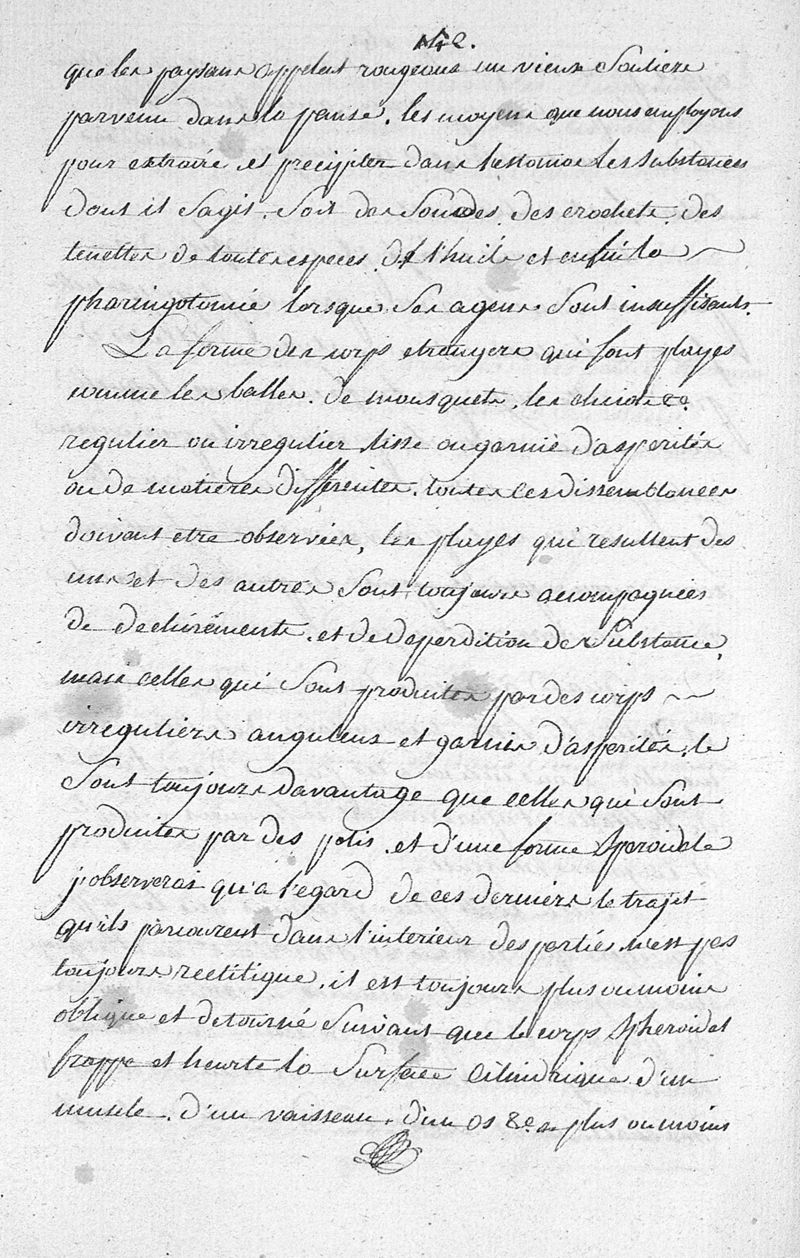 142.
que les paysans appelent rougeons un vieux Souliers
parvenu dans la panse, les moyens que nous employons
pour extraire et precipiter dans l'estomac les substances
dont il Sagit, Soit des Sondes, des crochets, des
tenettes de toutes especes, de l'huile et enfin la ~
pharingotomie lorsque Ses agens Sont insuffisants.
La forme des corps etrangers qui font playes
comme les balles de mousquets, les chicots &c.
regulier ou irregulier, lisse ou garnie d'asperités
ou de matieres differentes, toutes ces dissemblances
doivent etre observées, les playes qui resultent des
uns et des autres Sont toujours accompagnées
de dechirements, et de deperdition de Substance,
mais celles qui Sont produites par des corps ~
irreguliers anguleux et garnis d'asperités, le
Sont toujours davantage que celles qui Sont
produites par des polis, et d'une forme Speroidele
j'observerai qu'a l'egard de ces derniers le trajet
qu'ils parcourent dans l'interieur des parties n'est pas
toujours rectitique, il est toujours plus ou moins
oblique et detourné Suivant que le corps Spheroidel
frappe et heurte la Surface Cilindrique d'un
muscle, d'un vaisseau, d'un os &c. plus ou moins